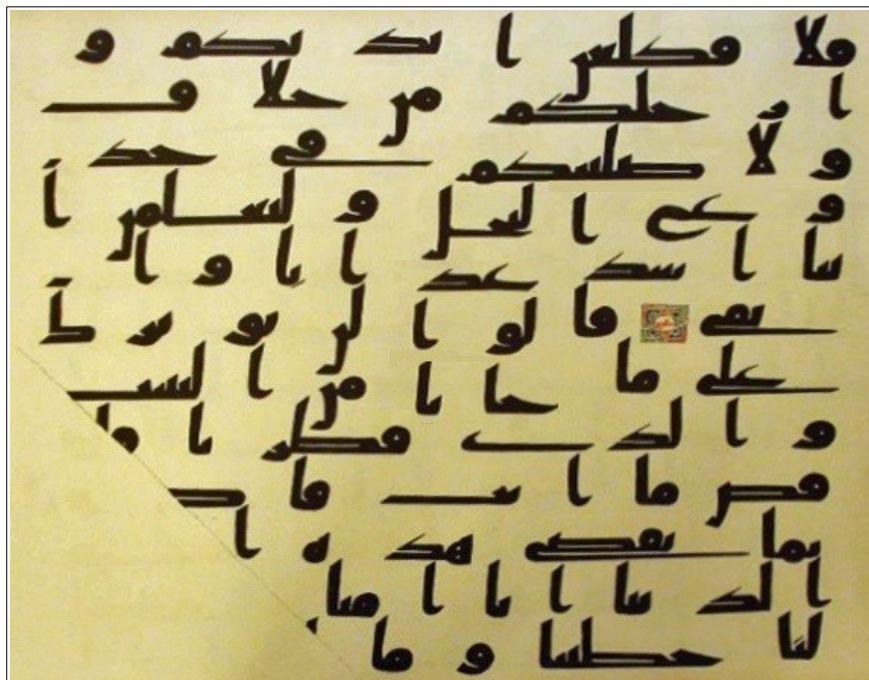 فلا قطعن ا يد يكم و
ا ر جلكم من خلا ف
و لا صلبنكم في جذ
و ع ا لنخل و لتعلمن ا
ينا ا شد عذ ا با و ا
بقى قا لو ا لن نو ثر ك
على ما جا نا من ا لبينـ
و ا لذ ى فطر نا فا
قض ما ا نت قا ض
نما تقضى هذ ه ا
ا لد نيا ا نا ا منا
لنا خطينا و ما